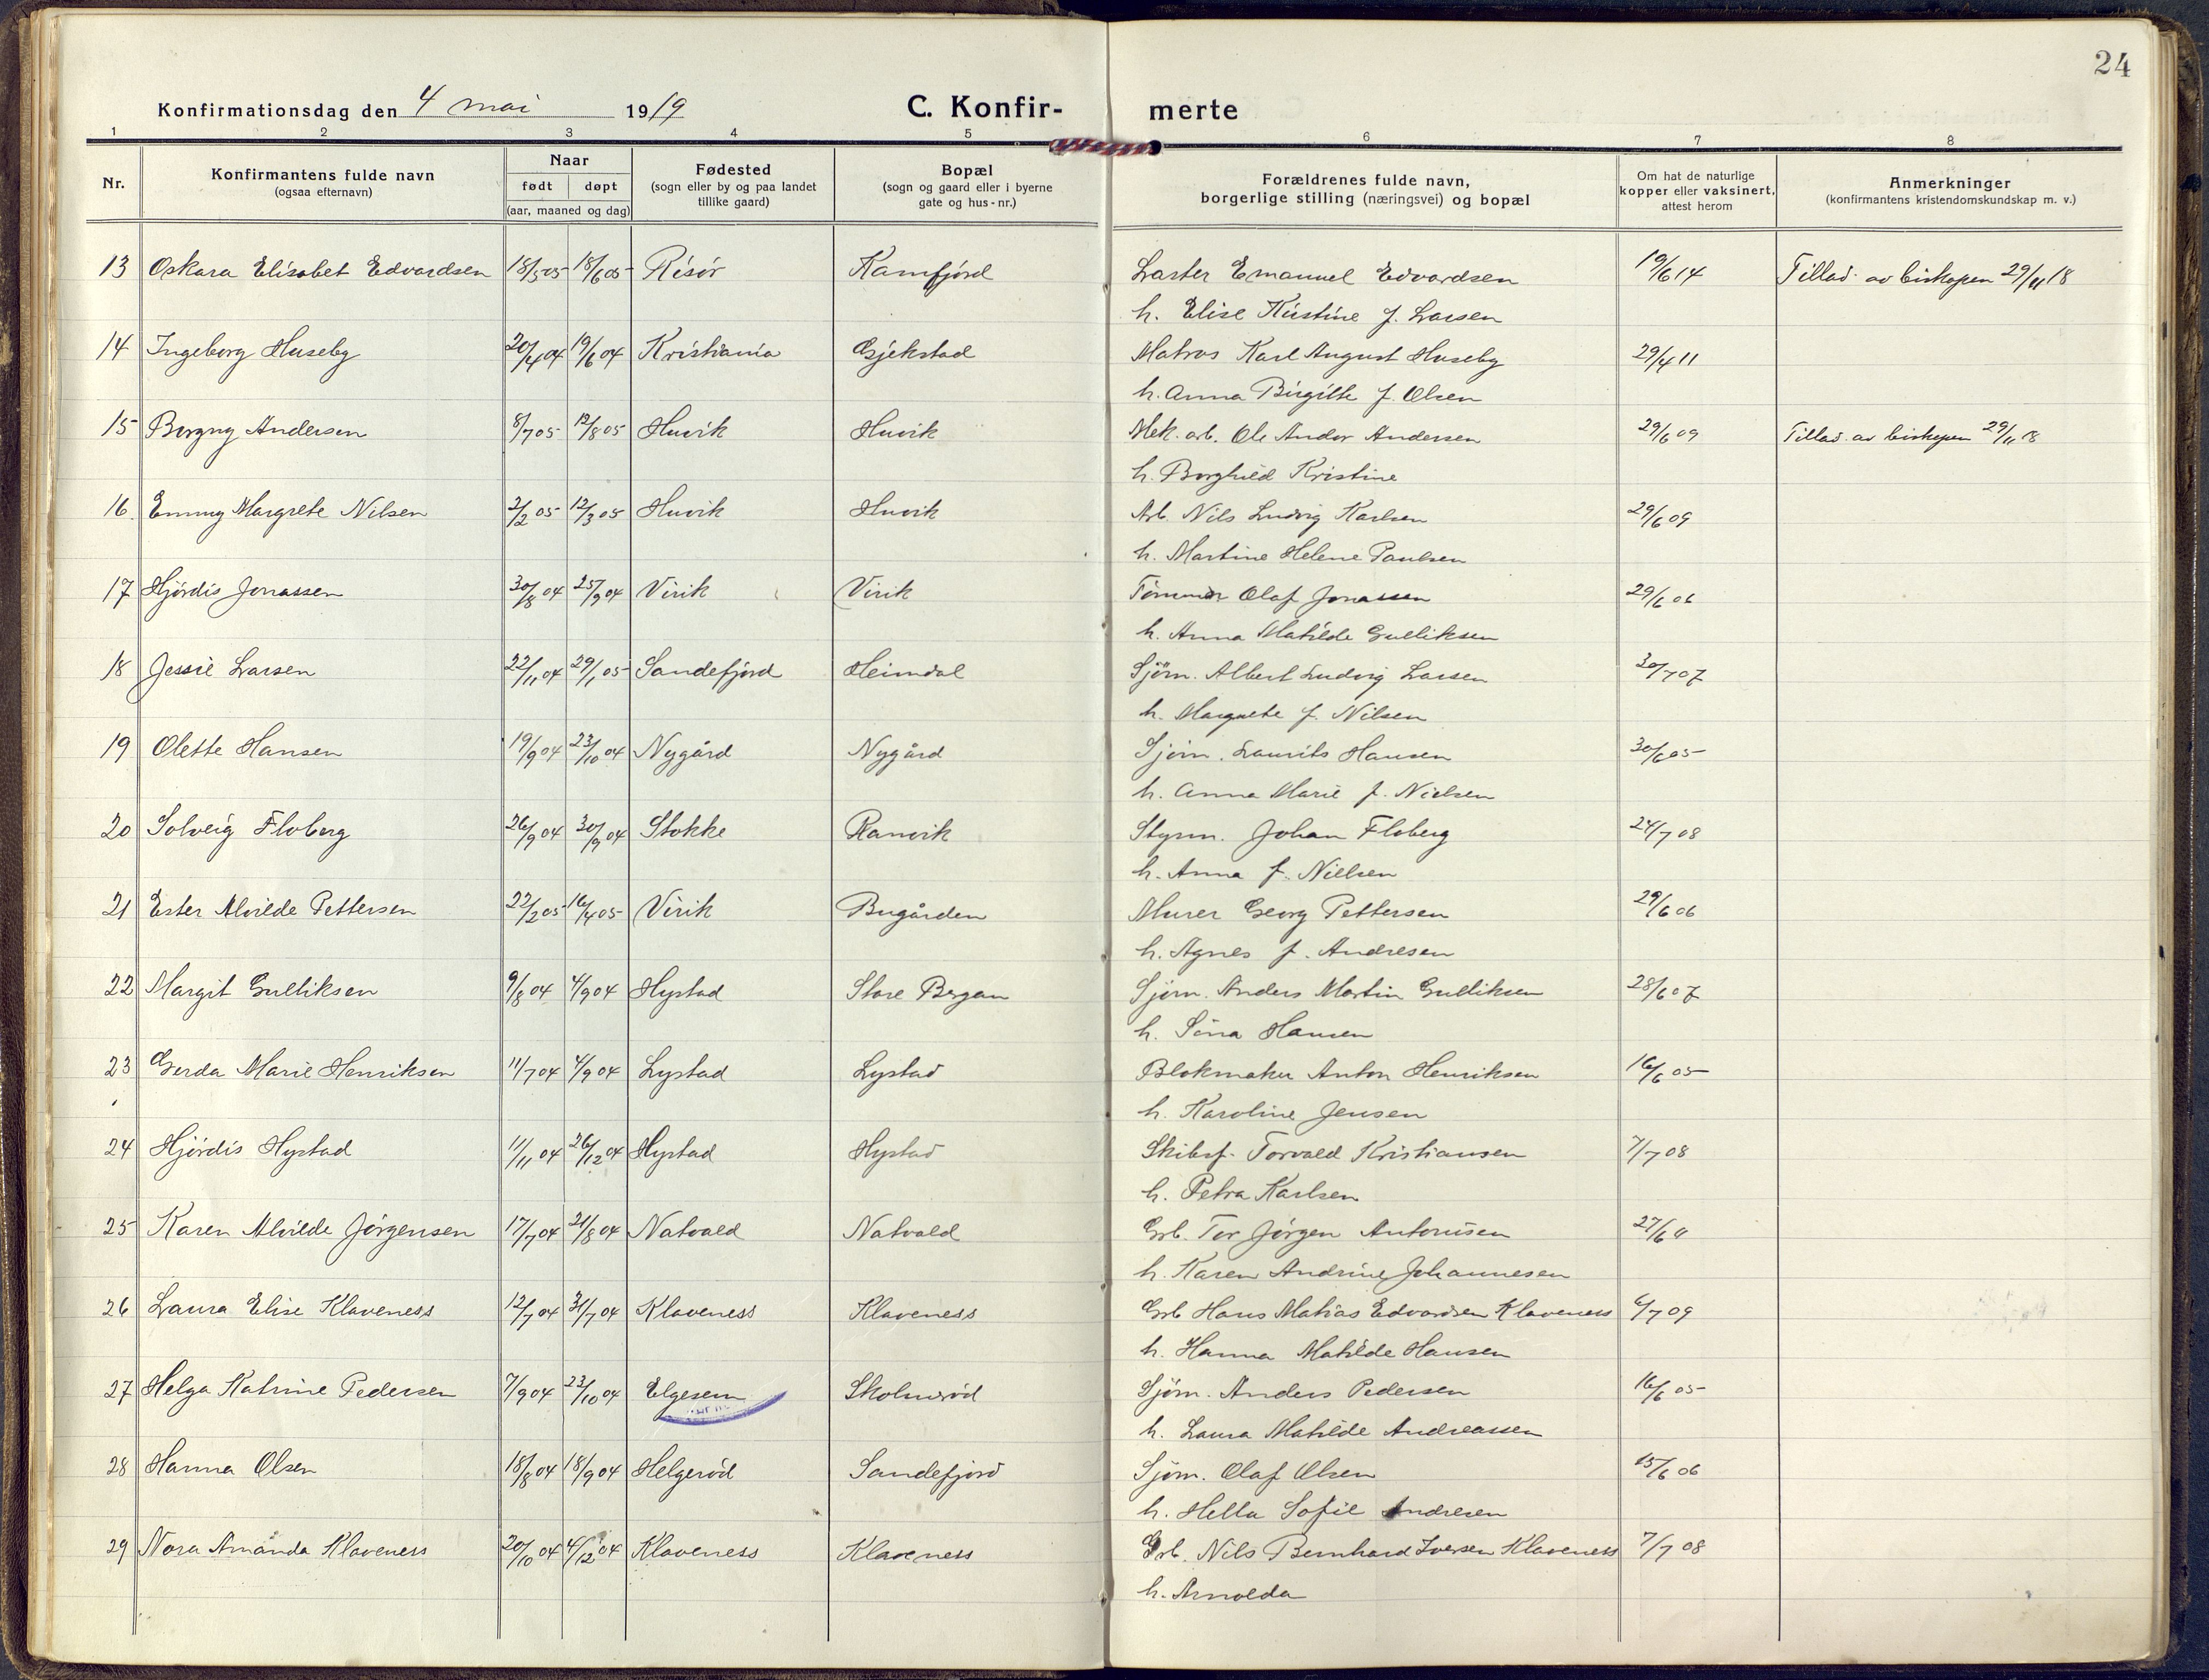 24
Konfirmationsdag den 4 mai 1919 C. Konfir- merte
1 2 3 4 5 6 7 8
Nr. Konfirmantens fulde navn (ogsaa efternavn) Naar født døpt (aar, maaned og dag) Fødested (sogn eller by og paa landet tillike gaard) Bopæl (sogn og gaard eller i byerne gate og hus-nr.) Forældrenes fulde navn, borgerlige stilling (næringsvei) og bopæl Om hat de naturlige kopper eller vaksinert, attest herom Anmerkninger (konfirmantens kristendomskundskap m. v.)
13 Oskara Elisabet Edvardsen 18/5 05 18/6 05 Risör Kamfjord Emanuel Edvardsen 19/6 14 Tillad. av biskopen 29/11 18
h. Elise Kristine f. Larsen
14 Ingeborg Huseby 20/4 04 19/6 04 Kristiania Gjekstad Matros Karl August Huseby 29/4 11
h. Anna Birgitte f. Olsen
15 Bergny Andersen 8/7 05 12/8 05 Huvik Huvik Mek. arb. Ole Andor Andersen 29/6 09 Tillad. av biskopen 29/11 18
h. Borghild Kristine
16 Emmy Margrete Nilsen 2/2 05 12/3 05 Huvik Huvik Arb. Nils Ludvig Karlsen 29/6 09
h. Martine Helene Paulsen
17 Hjördis Jonassen 30/8 04 25/9 04 Virik Virik Tömmer Olaf Jonassen 29/6 06
h. Anna Matilde Gulliksen
18 Jessie Larsen 22/11 04 29/1 05 Sandefjord Heimdal Sjöm. Albert Ludvig Larsen 30/7 07
h. Margrete f. Nilsen
19 Olette Hansen 19/9 04 23/10 04 Nygård Nygård Sjöm. Laurits Hansen 30/6 05
h. Anna Marie f. Nielsen
20 Solveig Floberg 26/9 04 30/9 04 Stokke Ranvik Styrm. Johan Floberg 24/7 08
h. Anna f. Nielsen
21 Ester Alvilde Pettersen 22/2 05 16/4 05 Virik Bugården Murer Georg Pettersen 29/6 06
h. Agnes f. Andresen
22 Margit Gulliksen 9/8 04 4/9 04 Hystad Store Bergan Sjöm. Anders Martin Gulliksen 28/6 07
h. Sina Hansen
23 Gerda Marie Henriksen 11/7 04 4/9 04 Lystad Lystad Blokmaker Anton Henriksen 16/6 05
h. Karoline Jensen
24 Hjördis Hystad 11/11 04 26/12 04 Hystad Hystad Skibsf. Torvald Kristiansen 7/7 08
h. Petra Karlsen
25 Karen Alvilde Jörgensen 17/7 04 21/8 04 Natvald Natvald Grb. Tor Jörgen Antonisen 27/6 11
h. Karen Andrine Johannesen
26 Laura Elise Klaveness 12/7 04 31/7 04 Klaveness Klaveness Grb Hans Matias Edvardsen Klaveness 6/7 09
h. Hanna Matilde Hansen
27 Helga Katrine Pedersen 7/9 04 23/10 04 Elgesem Skolmeröd Sjöm. Anders Pedersen 16/6 05
h. Laura Matilde Andreassen
28 Hanna Olsen 18/8 04 18/9 04 Helgeröd Sandefjord Sjöm. Olaf Olsen 15/6 06
h. Hella Sofie Andresen
29 Nora Amanda Klaveness 20/10 04 4/12 04 Klaveness Klaveness Grb. Nils Bernhard Iversen Klaveness 7/7 08
h. Arnolda